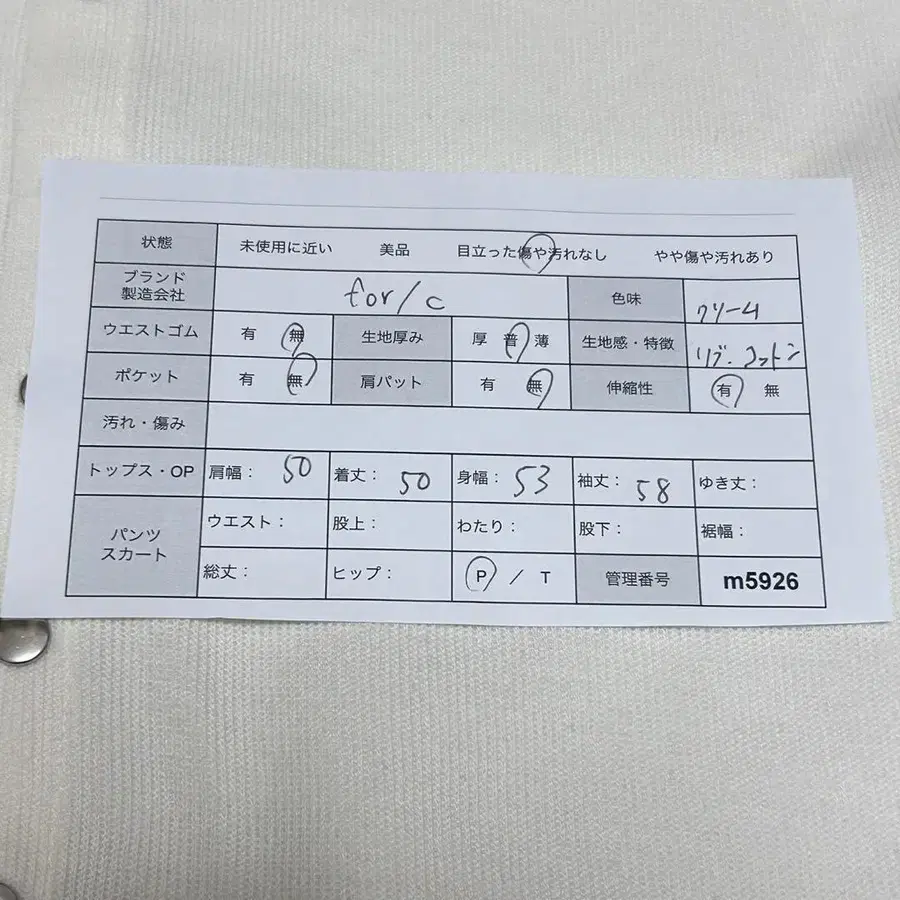 状態 未使用に近い 美品 目立った傷や汚れなし やや傷や汚れあり
ブランド
製造会社 for/c 色味 クリーム
ウエストゴム 有 無 生地厚み 厚 普 薄 生地感・特徴 リブ.コットン
ポケット 有 無 肩パット 有 無 伸縮性 有 無
汚れ・傷み
トップス・OP 肩幅: 50 着丈: 50 身幅: 53 袖丈: 58 ゆき丈:
パンツ
スカート
ウエスト: 股上: わたり: 股下: 裾幅:
総丈: ヒップ: P / T 管理番号 m5926